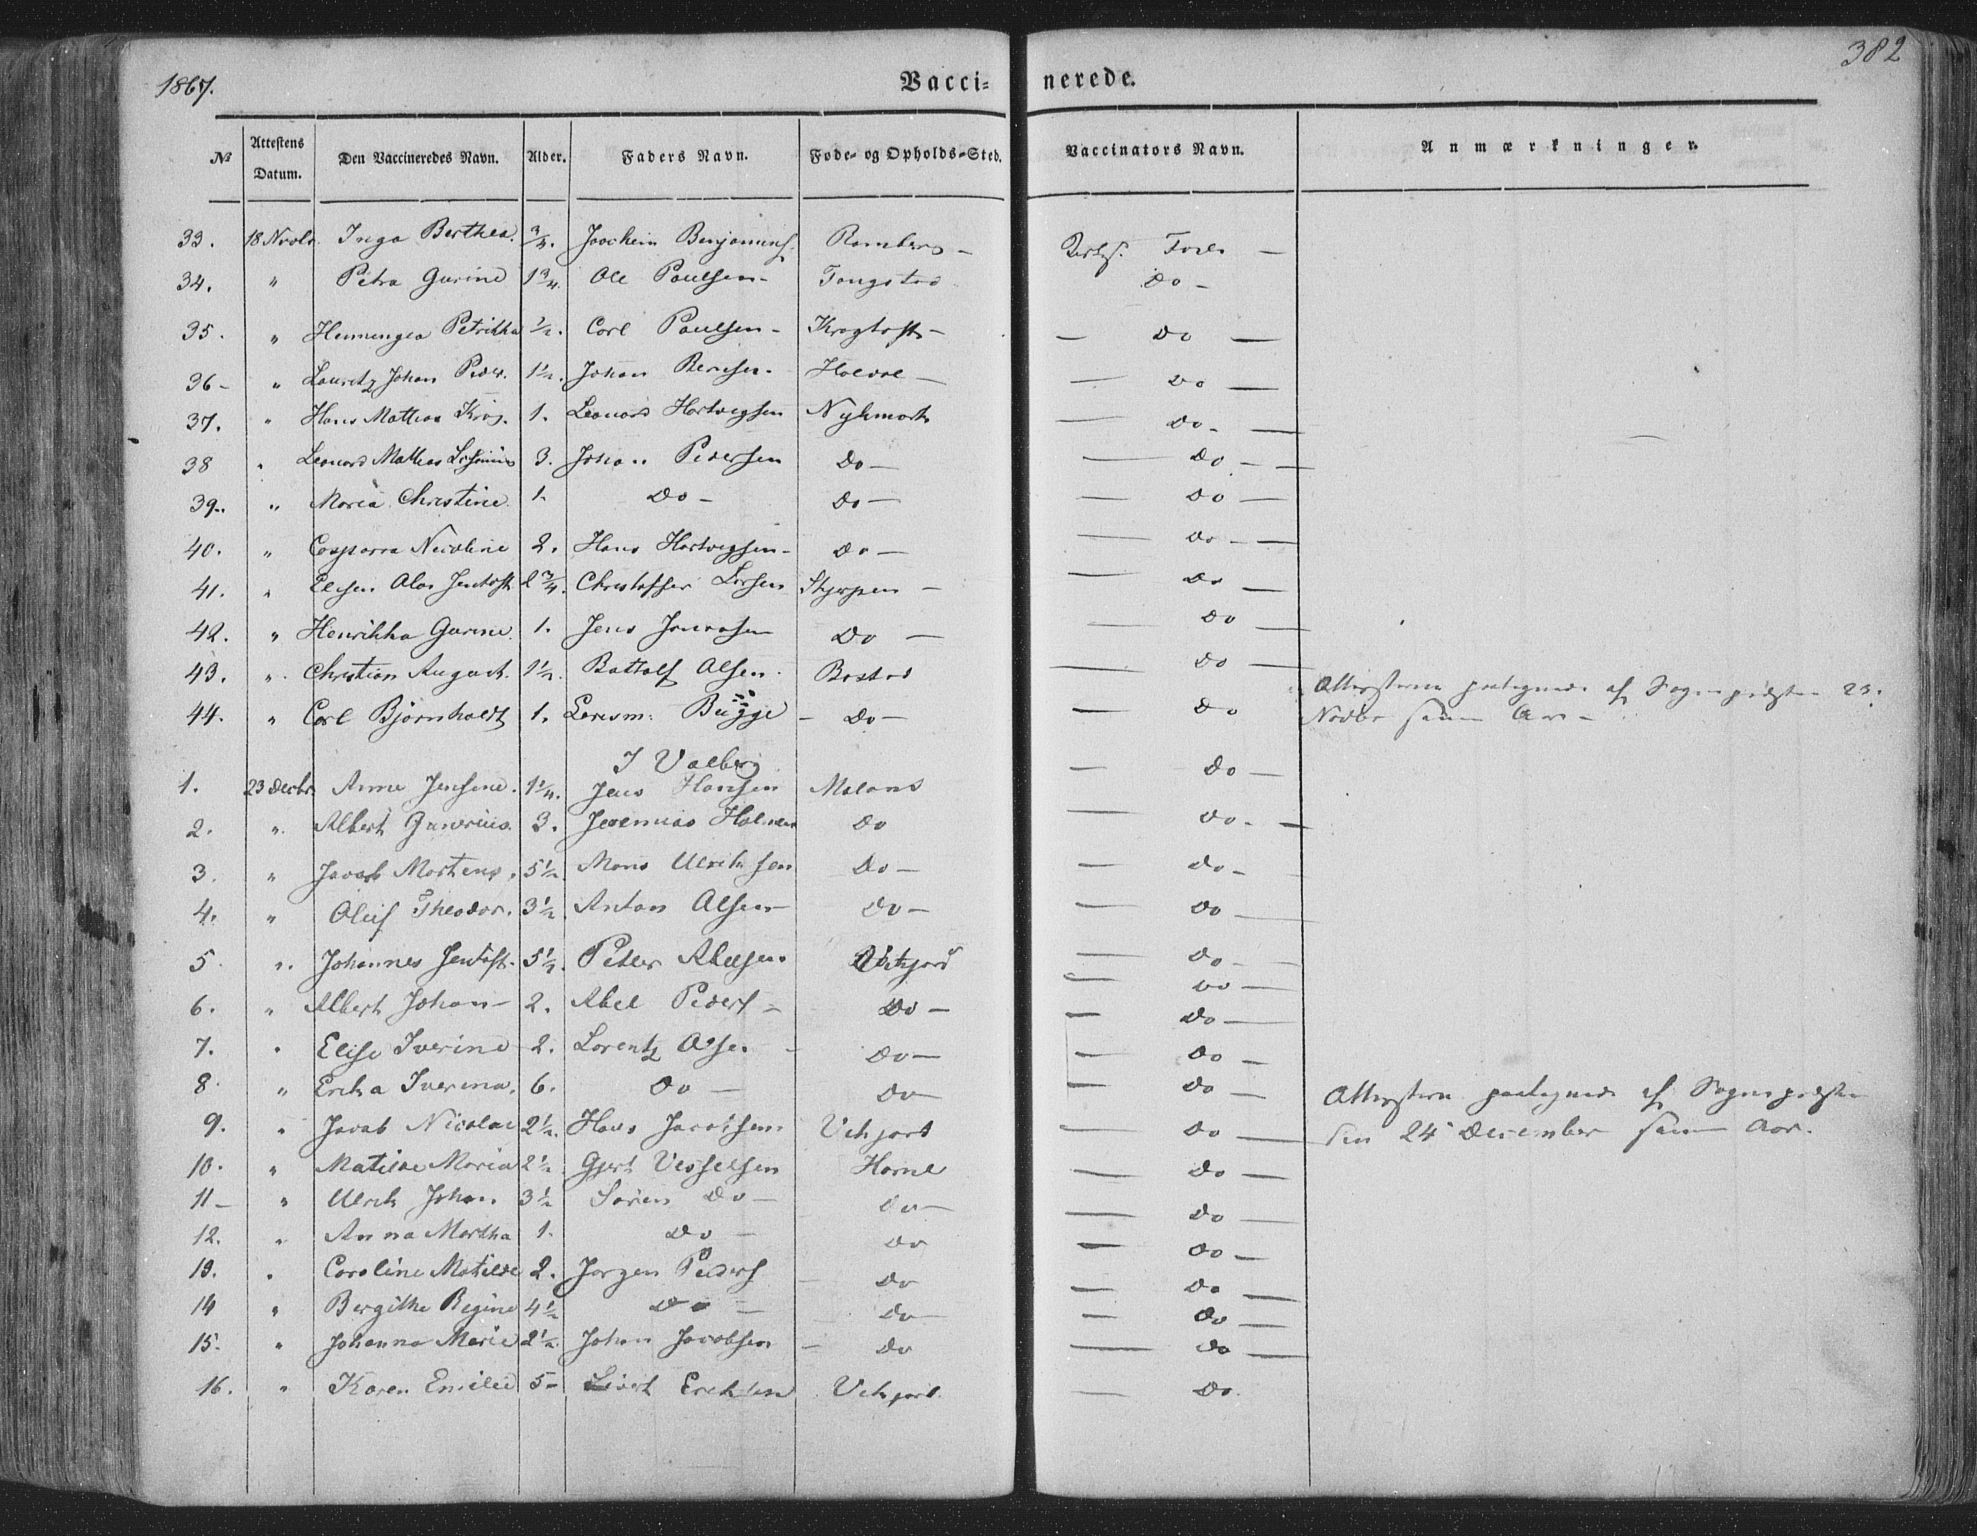 1867.
Vacci-
nerede.
382
№ Attestens Datum. Den Vaccineredes Navn. Alder. Faders Navn. Føde- og Opholds-Sted. Vaccinators Navn. Anmærkninger.
33. 18 Novbr. Inga Berthea. 3/4. Joachim Benjamins. Ramberg —
34. " Petra Gurine 1 3/4. Ole Paulsen - Tangstad Do -
35. " Hemmingea Petrikka 1/2. Carl Paulsen - Krogtoft - — Do —
36 - " Lauritz Johan Peder. 1 1/2. Johan Bernsen. — Do —
37. " Hans Mathias Krog. 1. Leonard Hartvigsen Nykmark — Do. —
38 " Leonard Mathias 3. Johan Pedersen Do — — Do - —
39. " Maria Christine. 1. Do - Do — — Do —
40. " Casparra Nicoline 2. Hans Hartvigsen - Do — — Do - —
41. " Elisen Olas Jentoft 2 3/4. Christoffer Larsen Skjerpen — — Do —
42. " Henrikka Gurine. 1. Jens Jonassen Do — — Do —
43. " Christian August. 1 1/2. Battolf Olsen. Bostad — Do —
44. " Carl Bjørnholdt 1. Bugge - Do — — Do
Attesterne paategnede af Sognepræsten 23.
Novbr samme Aar -
I Valberg
1. 23 Decbr. Anne Jensine. 1 1/4. Jens Hansen — Do —
2. " Albert 3. Jeremias Do — Do. —
3. " Jacob Mortens. 5 1/2. Mons Ulriksen Do — — Do -
4. " Oluf Theodor. 3 1/2. Anton Olsen Do — — Do —
5 " Johannes Jentoft. 5 1/2. Peter Abelsen — Do -
— Do —
6. " Albert Johan — 2. Abel Peders - Do — — Do —
7. " Elise Iverine 2. Lorentz Olsen - Do — — Do —
8. " Ericha Iverina. 6. Do — Do — — Do —
9. " Jacob Nicolai 2 1/2. Hans Jacobsen — Do —
Attesterne paategnede af Sognepræsten
den 24 December samme Aar.
10. " Matilde Maria 2 1/2. Gjert Vesselsen Horne — Do —
11 - " Ulrik Johan 3 1/2 Søren Do — Do — — Do —
12. " Anna Martha 1. Do — Do — Do —
13. " Caroline Matilde 2. Jørgen Peders — Do — Do —
14 " Bergithe Regine 4 1/2 Do — Do — — Do —
15. " Johanna Marie 2 1/2. Johan Jacobsen — Do — Do —
16. " Karen Emilie 5 - Sivert Ericksen — Do.